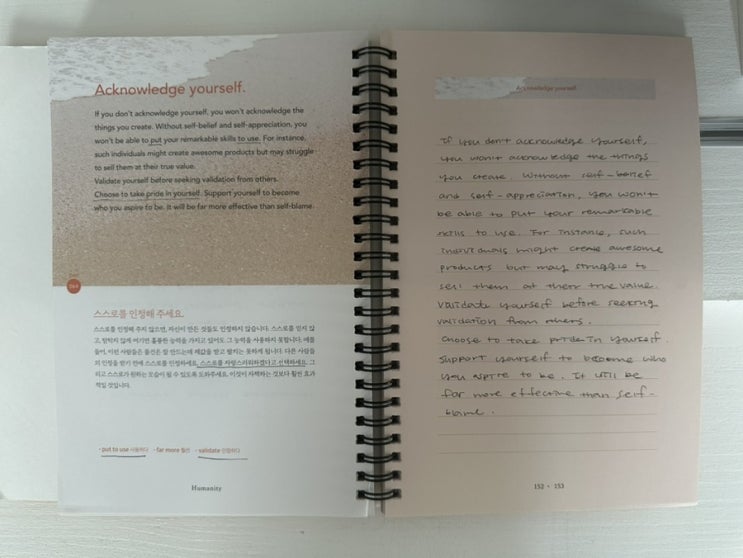 Acknowledge yourself.
If you don't acknowledge yourself, you won't acknowledge the
things you create. Without self-belief and self-appreciation, you
won't be able to put your remarkable skills to use. For instance,
such individuals might create awesome products but may struggle
to sell them at their true value.
Validate yourself before seeking validation from others.
Choose to take pride in yourself. Support yourself to become
who you aspire to be. It will be far more effective than self-blame.
스스로를 인정해 주세요.
스스로를 인정해 주지 않으면, 자신이 만든 것들도 인정하지 않습니다. 스스로를 믿지 않
고, 탐탁지 않게 여기면 훌륭한 능력을 가지고 있어도 그 능력을 사용하지 못합니다. 예를
들어, 이런 사람들은 물건은 잘 만드는데 제값을 받고 팔지는 못하게 됩니다. 다른 사람들
의 인정을 받기 전에 스스로를 인정하세요. 스스로를 자랑스러워하겠다고 선택하세요. 그
리고 스스로가 원하는 모습이 될 수 있도록 도와주세요. 이것이 자책하는 것보다 훨씬 효과
적일 것입니다.
• put to use 사용하다 • far more 훨씬 • validate 인정하다
Humanity
Acknowledge yourself.
If you don't acknowledge yourself,
you won't acknowledge the things
you create. Without self-belief
and self-appreciation, you won't
be able to put your remarkable
skills to use. For instance, such
individuals might create awesome
products but may struggle to
sell them at their true value.
Validate yourself before seeking
validation from others.
Choose to take pride in yourself.
Support yourself to become who
you aspire to be. It will be
far more effective than self-
blame.
152 • 153